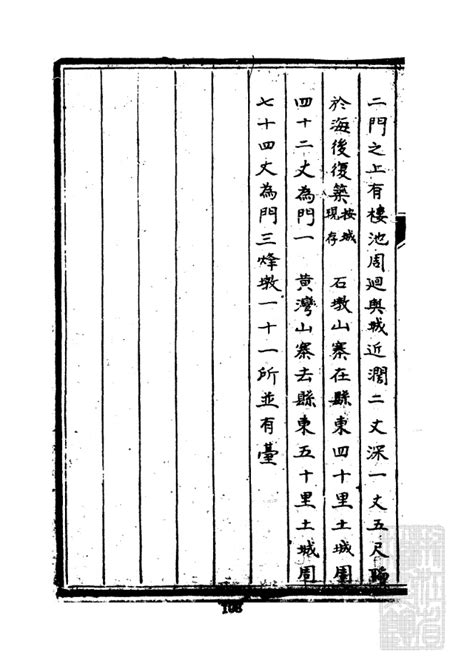 二門之上有樓池周迴與城近濶二丈深一丈五尺
於海後復築按城現存　石墩山寨在縣東四十里土城圍
四十二丈為門一　黃灣山寨去縣東五十里土城周
七十四丈為門三烽墩一十一所並有臺
168